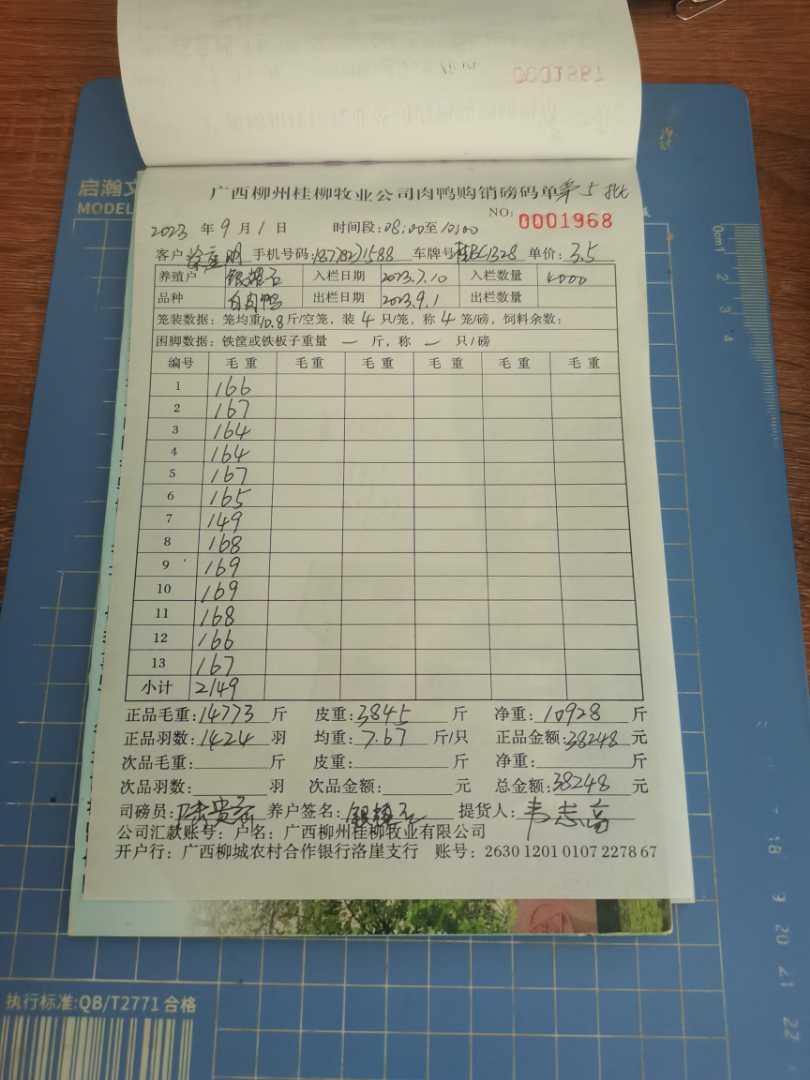 0001987
启瀚文
MODEL
广西柳州桂柳牧业公司肉鸭购销磅码单 第5批
NO: 0001968
2023 年 9 月 1 日 时间段: 08:00至10:00
客户 手机号码: 车牌号 单价: 3.5
养殖户 入栏日期 2023.7.10 入栏数量 4000
品种 白肉鸭 出栏日期 2023.9.1 出栏数量
笼装数据: 笼均重10.8斤/空笼, 装 4 只/笼, 称 4 笼/磅, 饲料余数:
困脚数据: 铁筐或铁板子重量 — 斤, 称 — 只/磅
编号 毛重 毛重 毛重 毛重 毛重 毛重
1 166
2 167
3 164
4 164
5 167
6 165
7 149
8 168
9 169
10 169
11 168
12 166
13 167
小计 2149
正品毛重: 14773 斤 皮重: 3845 斤 净重: 10928 斤
正品羽数: 1424 羽 均重: 7.67 斤/只 正品金额: 38248 元
次品毛重: 斤 皮重: 斤 净重: 斤
次品羽数: 羽 次品金额: 元 总金额: 38248 元
司磅员: 养户签名: 提货人: 韦志高
公司汇款账号: 户名: 广西柳州桂柳牧业有限公司
开户行: 广西柳城农村合作银行洛崖支行 账号: 2630 1201 0107 2278 67
执行标准:QB/T2771 合格
0cm 1 2 3 4
18 9 20 21 22